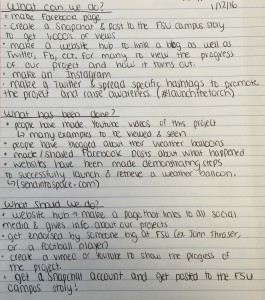 What can we do? 1/12/16
• make Facebook page
• create a Snapchat & post to the FSU campus story
to get 1,000s of views
• make a website hub to link a blog as well as
Twitter, Fb, ect. for many to view the progress
of our project and how it turns out.
• make an Instagram
• make a Twitter & spread specific hashtags to promote
the project and raise awareness. (#launchthetorch)
What has been done?
• people have made Youtube videos of this project
↳ many examples to be viewed & seen
• people have blogged about their weather balloons
• made/shared Facebook posts about what happened
• websites have been made demonstrating steps
to successfully launch & retrieve a weather balloon.
↳ (sendintospace.com)
What should we do?
• website hub → make a page that links to all social
media & gives info about our projects
• get endorsed by someone big at FSU (ex John Thrasher,
or a football player)
• create a vimeo or Youtube to show the progress of
the project.
• get a Snapchat account and get posted to the FSU
campus story!